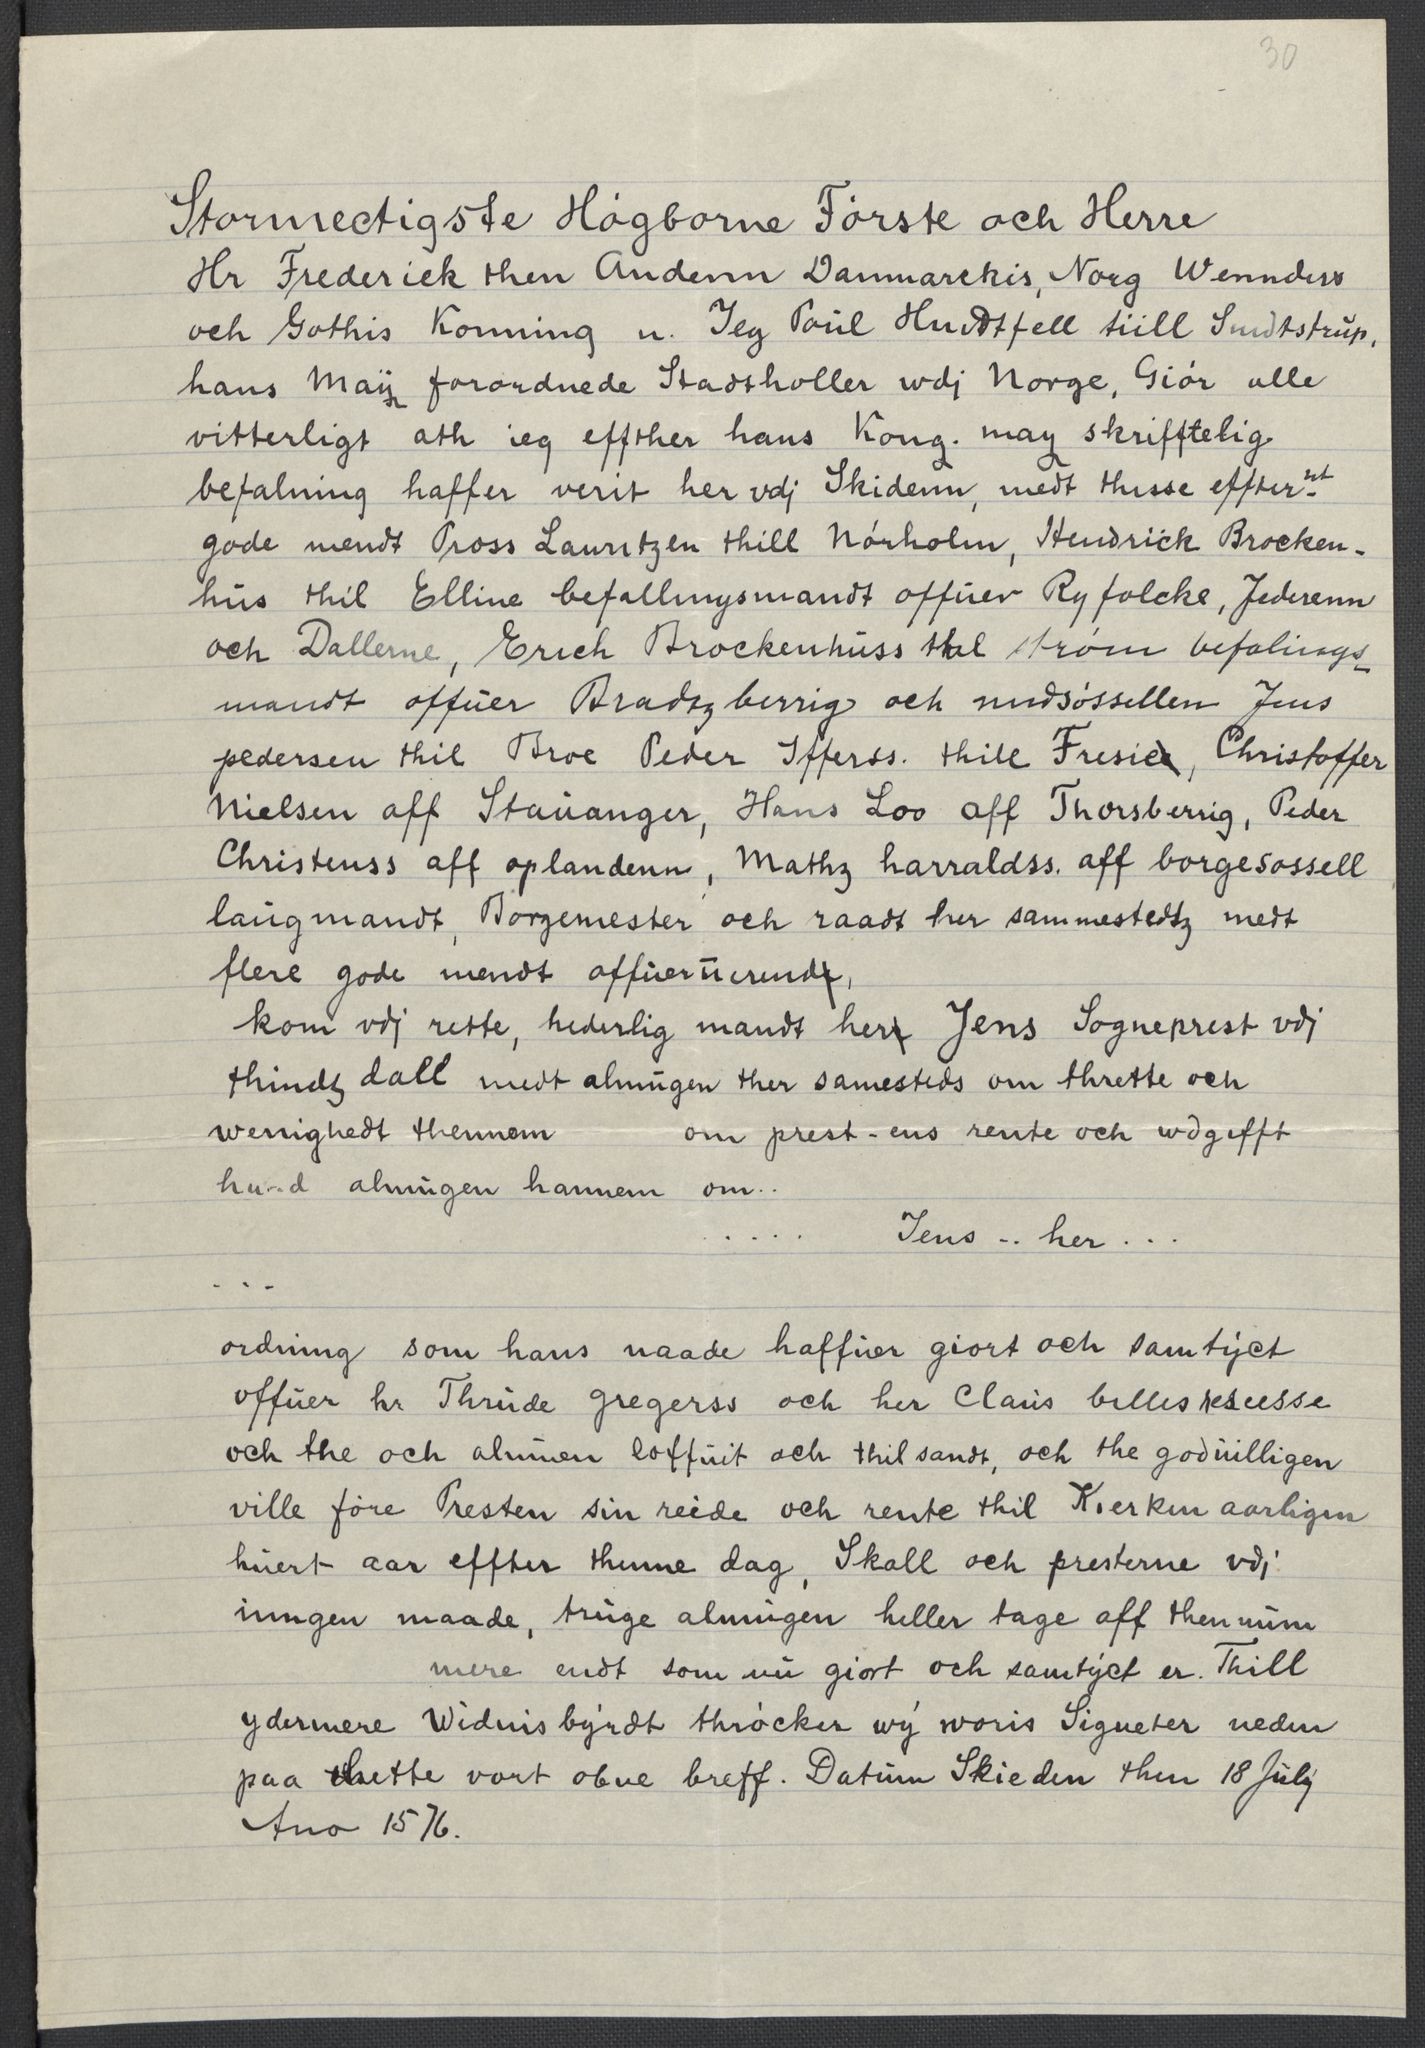 30
Stormectigste Högborne Förste och Herre
Hr Frederick then Andenn Danmarckis, Norg Wennders
och Gothis Konning u. Jeg Poül Huidtfell tiill Smdtstrüp,
hans Maÿ forordnede Stadtholler wdj Norge, Giör alle
vitterligt ath ieg effther hans Kong. may skrifftelig
befalning haffer verit her vdj Skidenn, medt thisse effternt
gode mendt Pross Lauritzen thill Nörholm, Hendrick Brocken-
hüs thil Elline befallingsmandt offüer Ryfolcke, Jederenn
och Dallerne, Erich Brockenhüss thil ström befalings-
mandt offüer Bradtzberrig och nudsössellen Jens
pedersen thil Broe Peder Ifferss. thill Fresie, Christoffer
Nielsen aff Staüanger, Hans Loo aff Thorsberrig, Peder
Christenss aff oplandenn, Mathz harraldss. aff borgesossell
laügmandt, Borgemester och raadt her sammestedtz medt
flere gode mendt offüerüerendt,
kom vdj rette, hederlig mandt her Jens Sogneprest vdj
thindtz dall medt almügen ther samesteds om thrette och
wenighedt thennem om prest-ens rente och wdgifft
hu..d almügen hannem om..
..... Jens .. her ...
...
ordning som hans naade haffüer giort och samtÿct
offüer hr Thrüde gregerss och her Claüs billes
och the och almüen loffüit och thilsandt, och the godüilligen
ville före Presten sin reide och rente thil Kierken aarligen
hüert aar effter thenne dag, Skall och presterne vdj
inngen maade, trüge almügen heller tage aff thennüm
mere endt som nü giort och samtÿct er. Thill
ydermere Widnisbÿrdt thröcker wÿ woris Signeter neden
paa thette vort obne breff. Datüm Skieden then 18 Jülÿ
Ano 1576.